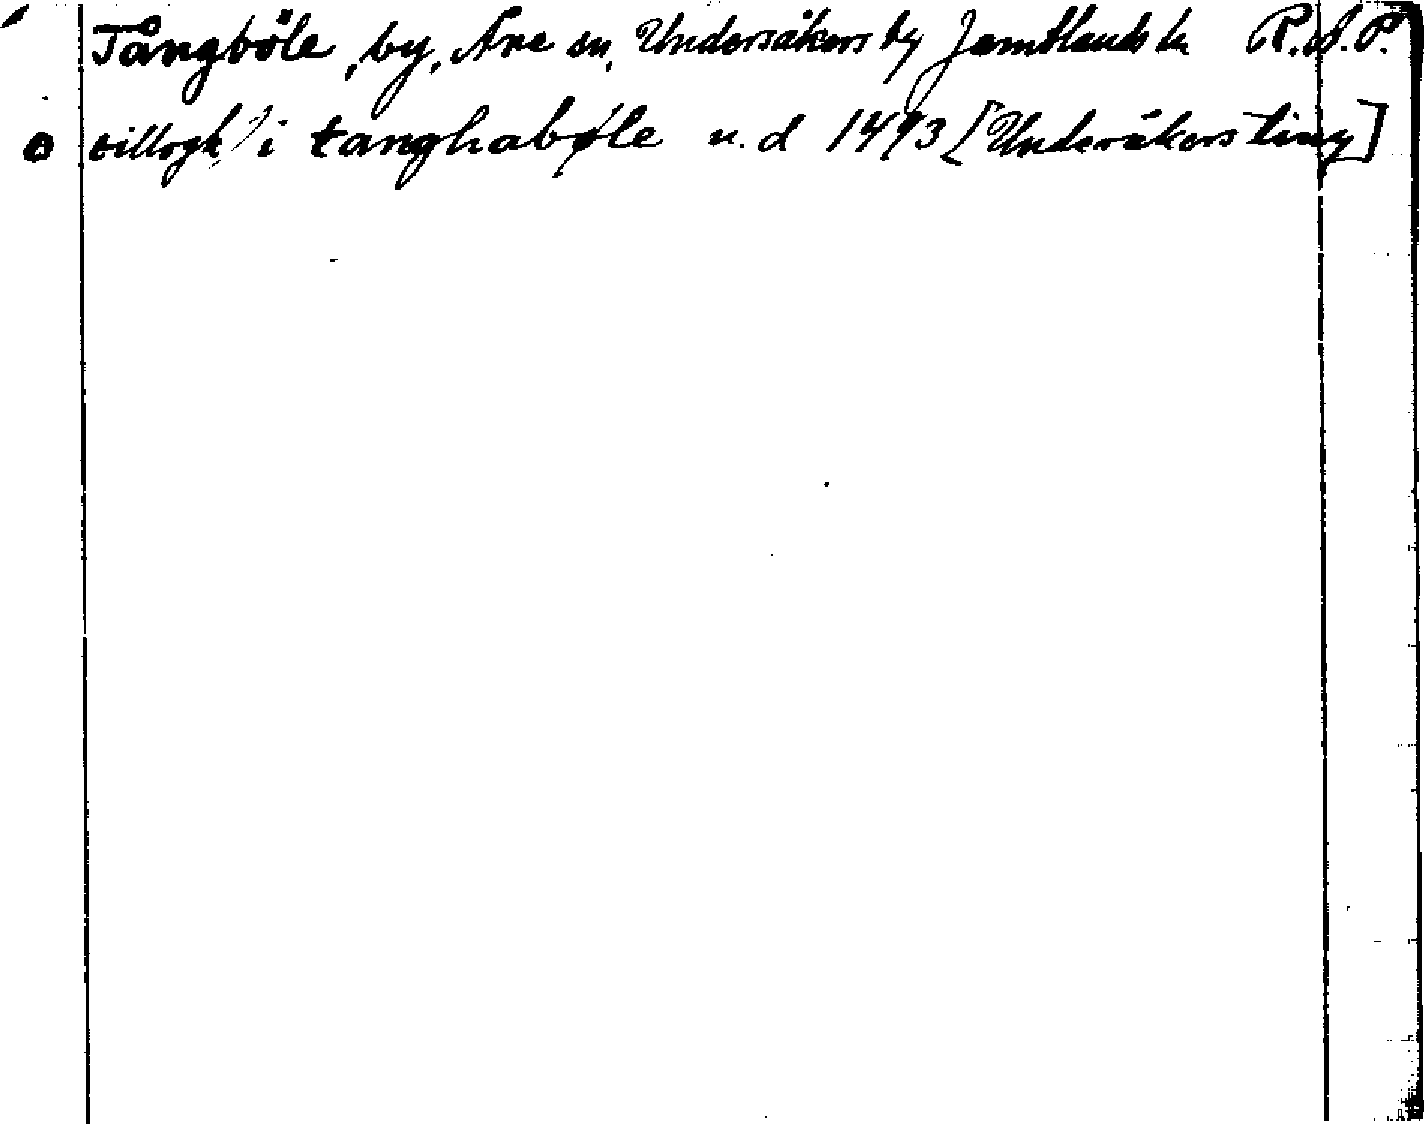 Tångböle, by, Åre sn, Undersåkers tg Jämtlands ln R.A.P.
i tanghabøle u. d 1493 [Undersåkers ting]